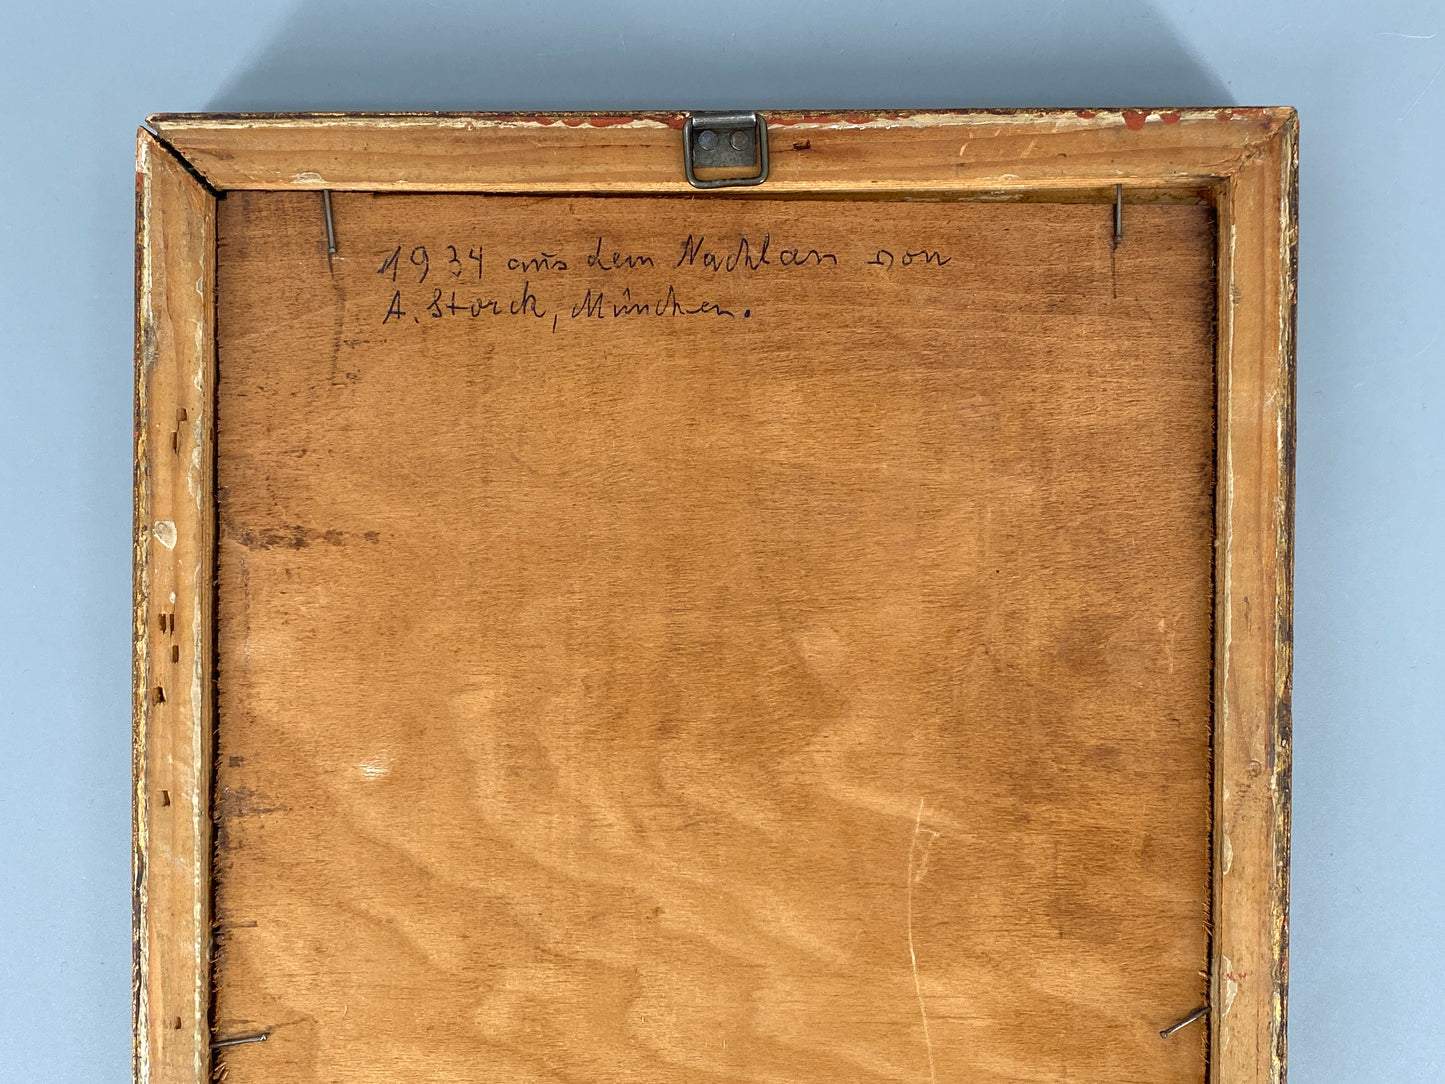 1934 aus dem Nachlass von
A. Storck, München.